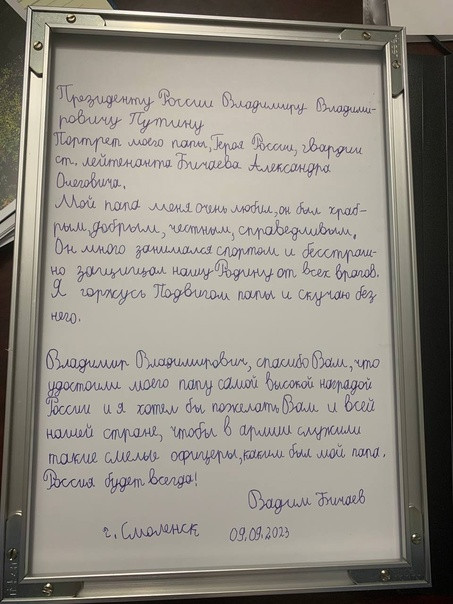 Президенту России Владимиру Владими-
ровичу Путину
Портрет моего папы, Героя России, гвардии
ст. лейтенанта Бичаева Александра
Олеговича.
Мой папа меня очень любил, он был храб-
рым, добрым, честным, справедливым.
Он много занимался спортом и бесстраш-
но защищал нашу Родину от всех врагов.
Я горжусь Подвигом папы и скучаю без
него.
Владимир Владимирович, спасибо Вам, что
удостоили моего папу самой высокой наградой
России и я хотел бы пожелать Вам и всей
нашей стране, чтобы в армии служили
такие смелые офицеры, каким был мой папа.
Россия будет всегда!
Вадим Бичаев
г. Смоленск 09.09.2023